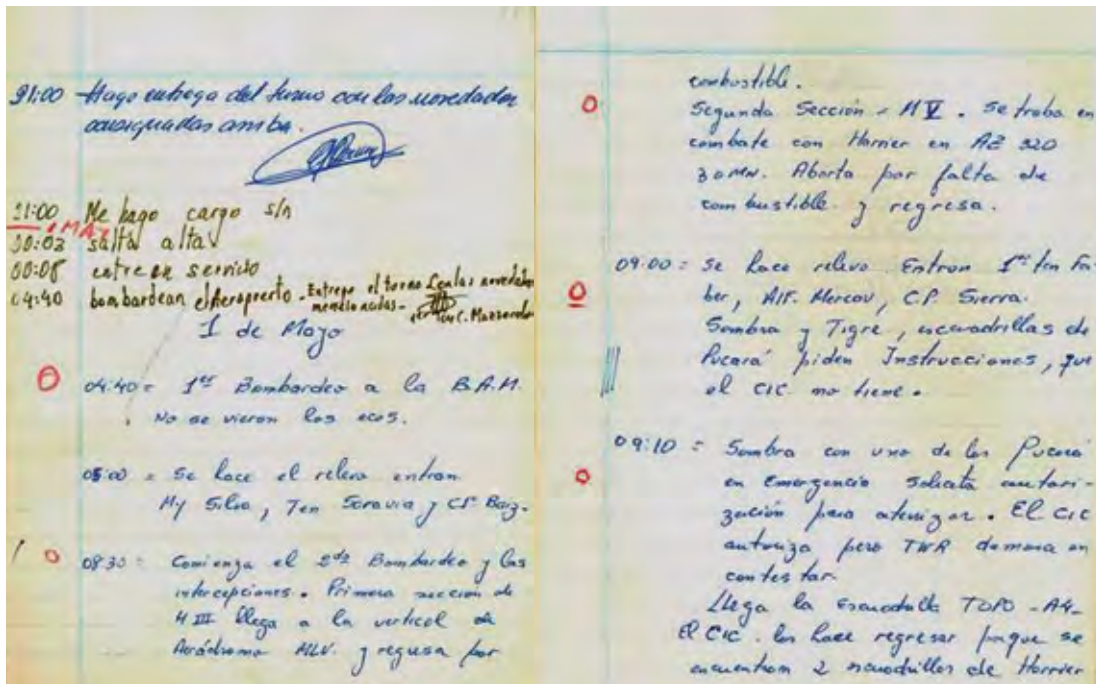 21:00 Hago entrega del turno con las novedades
consignadas arriba.
21:00 Me hago cargo s/n
1 MAY
00:03 salta alta
00:08 entre en servicio
04:40 bombardean el Aeropuerto - Entrego el turno con las novedades
mencionadas -
1 de Mayo
O 04:40 = 1er Bombardeo a la B.A.M.
No se vieron los ecos.
05:00 = Se hace el relevo entran
My Silva, Ten Saravia y CP Baiz.
O 08:30 = Comienza el 2do Bombardeo y las
intercepciones. Primera sección de
M III llega a la vertical de
Aeródromo MLV. y regresa por
combustible.
O Segunda Sección - M V. Se traba en
combate con Harrier en AZ 320
30 MN. Aborta por falta de
combustible y regresa.
09:00 = Se hace relevo Entran 1er Ten Fa-
O ber, Alf. Mercau, C.P. Sierra.
Sombra y Tigre, escuadrillas de
Pucará piden Instrucciones, que
el CIC no tiene.
09:10 = Sombra con uno de los Pucará
O en Emergencia Solicita autori-
zación para aterrizar. El CIC
autoriza, pero TWR demora en
contestar.
Llega la Escuadrilla TOPO -A4-
El CIC. los hace regresar porque se
encuentran 2 escuadrillas de Harrier